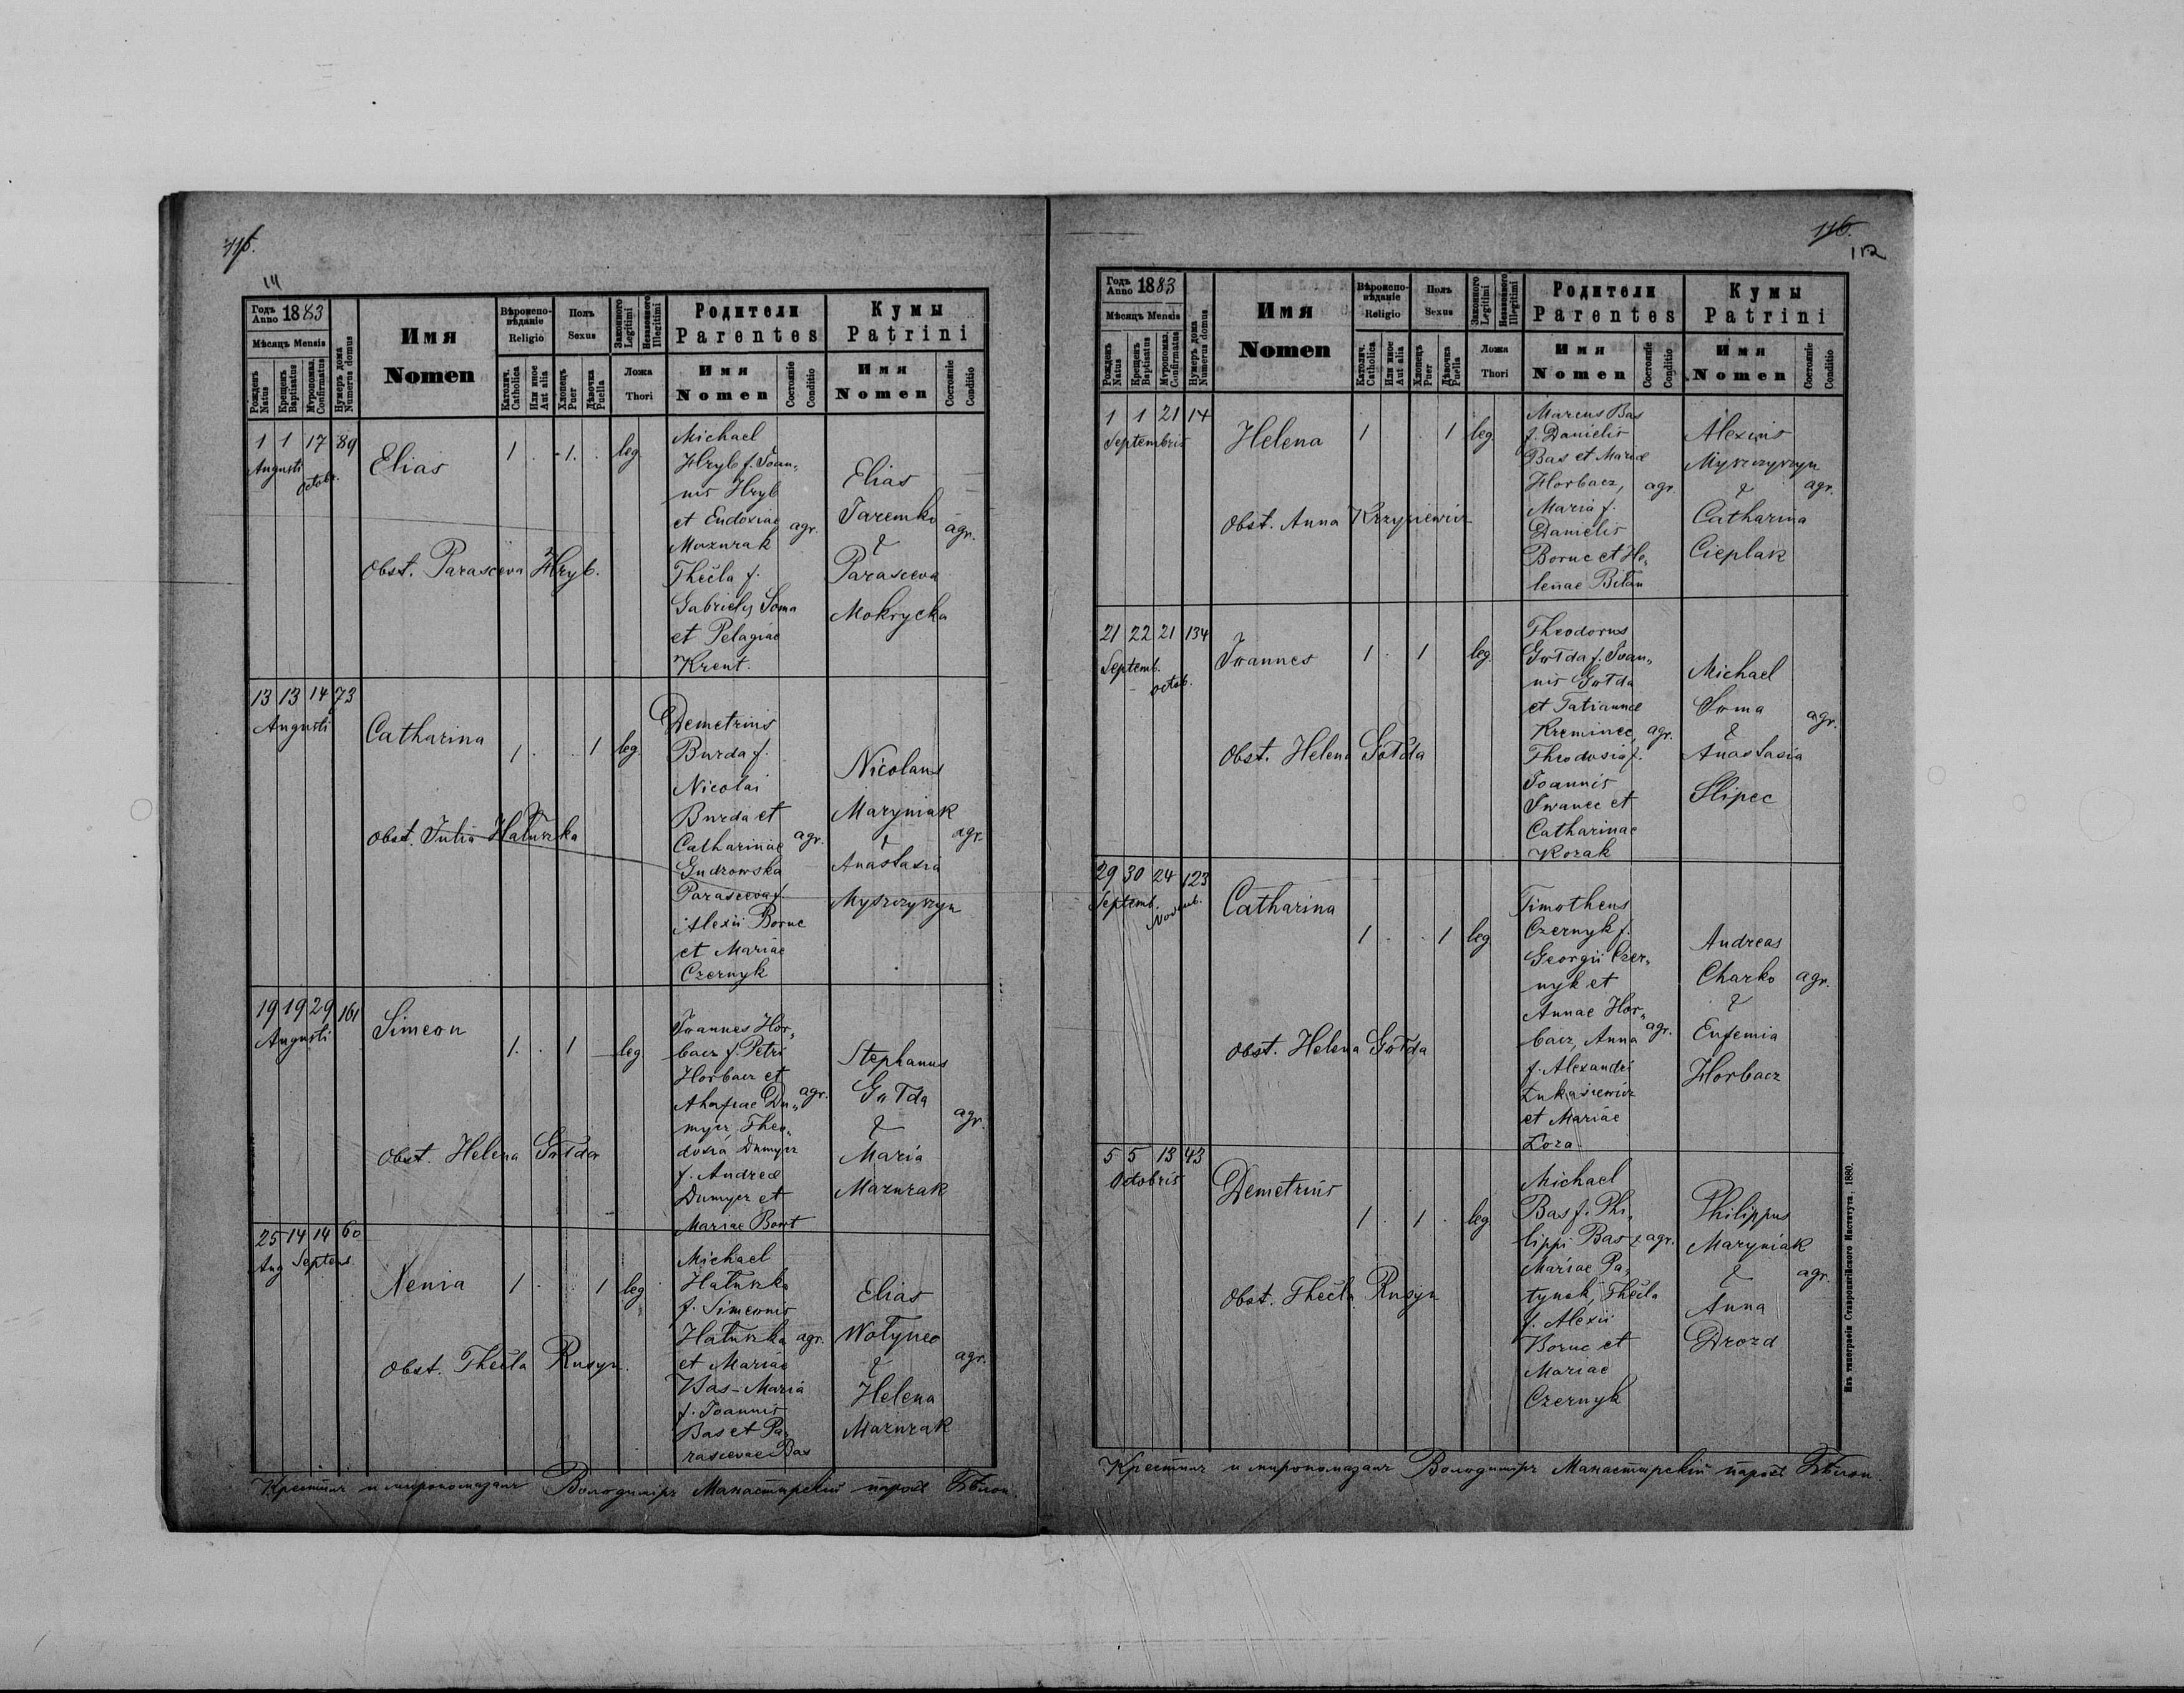 111
Годъ Anno 1883
Имя
Nomen
Вѣроиспо-вѣданіе
Religio
Полъ
Sexus
Законного Legitimi
Незаконного Illegitimi
Родители
Parentes
Кумы
Patrini
Мѣсяцъ Mensis
Рожденъ Natus
Крещенъ Baptisatus
Мѵропомаз. Confirmatus
Нумеръ дома Numerus domus
Католич. Catholica
Или иное Aut alia
Хлопецъ Puer
Дѣвочка Puella
Ложа
Thori
Имя
Nomen
Состояніе Conditio
Имя
Nomen
Состояніе Conditio
1 1 17 89
Augusti
Octobr.
Elias
1 . 1 . leg.
Obst. Parasceva Hryb.
Michael
Hryb f. Joan-
nis Hryb
et Eudoxiae agr.
Mazurak
Thecla f.
Gabrielis Soma
et Pelagiae
Krent.
Elias
Jaremko
&
agr.
Parasceva
Mokrycka
13 13 14 73
Augusti
Catharina
1 . . 1 leg.
Obst. Julia Hałuszka
Demetrius
Burda f.
Nicolai
Burda et
Catharinae agr.
Gudzowska
Parasceva f.
Alexii Boruc
et Mariae
Czernyk
Nicolaus
Maryniak
&
agr.
Anastasia
Myszczyszyn
19 19 29 161
Augusti
Simeon
1 . 1 leg
Obst. Helena Gołda
Joannes Hor-
bacz f. Petri
Horbacz et
Ahafiae Du- agr.
mycz, Theo-
dosia Dumycz
f. Andreae
Dumycz et
Mariae Bont
Stephanus
Gołda
&
agr.
Maria
Mazurak
25 14 14 60
Aug Septem.
Xenia
1 . . 1 leg
Obst. Thecla Rusyn.
Michael
Hałuszka
f. Simeonis
Hałuszka agr.
et Mariae
Bas - Maria
f. Joannis
Bas et Pa-
rascevae Bas
Elias
Wołyneo
&
agr.
Helena
Mazurak
Крестилъ и миропомазалъ Володимиръ Манастирскій парохъ
112
Годъ Anno 1883
Имя
Nomen
Вѣроиспо-вѣданіе
Religio
Полъ
Sexus
Законного Legitimi
Незаконного Illegitimi
Родители
Parentes
Кумы
Patrini
Мѣсяцъ Mensis
Рожденъ Natus
Крещенъ Baptisatus
Мѵропомаз. Confirmatus
Нумеръ дома Numerus domus
Католич. Catholica
Или иное Aut alia
Хлопецъ Puer
Дѣвочка Puella
Ложа
Thori
Имя
Nomen
Состояніе Conditio
Имя
Nomen
Состояніе Conditio
1 1 21 14
Septembris
Helena
1 . 1 leg
Obst. Anna Krzysiewicz
Marcus Bas
f. Danielis
Bas et Mariae
Horbacz, agr.
Maria f.
Danielis
Boruc et He-
lenae Bilan
Alexius
Myszczyszyn
&
agr.
Catharina
Cieplak
21 22 21 134
Septemb.
Octob.
Joannes
1 . 1 leg.
Obst. Helena Gołda
Theodorus
Gołda f. Joan-
nis Gołda
et Tatiannae
Kreminec, agr.
Theodosia f.
Joannis
Iwanec et
Catharinae
Kozak
Michael
Soma
&
agr.
Anastasia
Slipec
29 30 24 123
Septemb.
Novemb.
Catharina
1 . . 1 leg
Obst. Helena Gołda
Timotheus
Czernyk f.
Georgii Czer-
nyk et
Annae Hor-
bacz, Anna agr.
f. Alexandri
Łukasiewicz
et Mariae
Łoza.
Andreas
Charko agr.
&
Eufemia
Horbacz
5 5 13 43
Octobris
Demetrius
1 . 1 . leg
Obst. Thecla Rusyn
Michael
Bas f. Phi-
lippi Bas & agr.
Mariae Pa-
tynok, Thecla
f. Alexii
Boruc et
Mariae
Czernyk
Philippus
Maryniak
&
agr.
Anna
Drozd
Изъ типографіи Ставропигійского Института, 1880.
Крестилъ и миропомазалъ Володимиръ Манастирскій парохъ